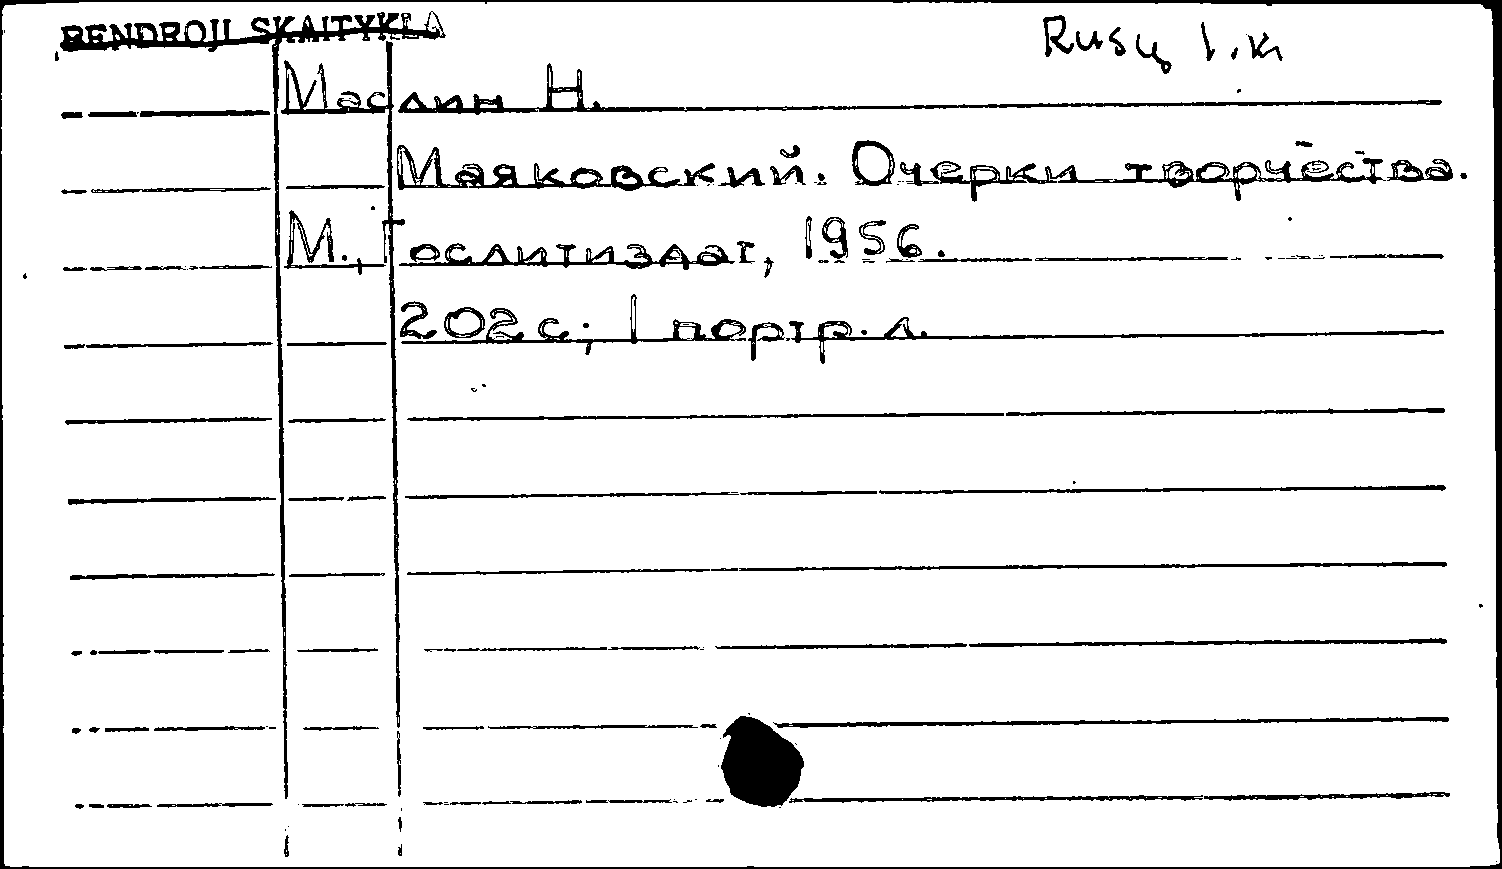 BENDROJI SKAITYKLA
Rusų l. k.
Маслин Н.
Маяковский. Очерки творчества.
М., Гослитиздат, 1956.
202 с; 1 портр. л.